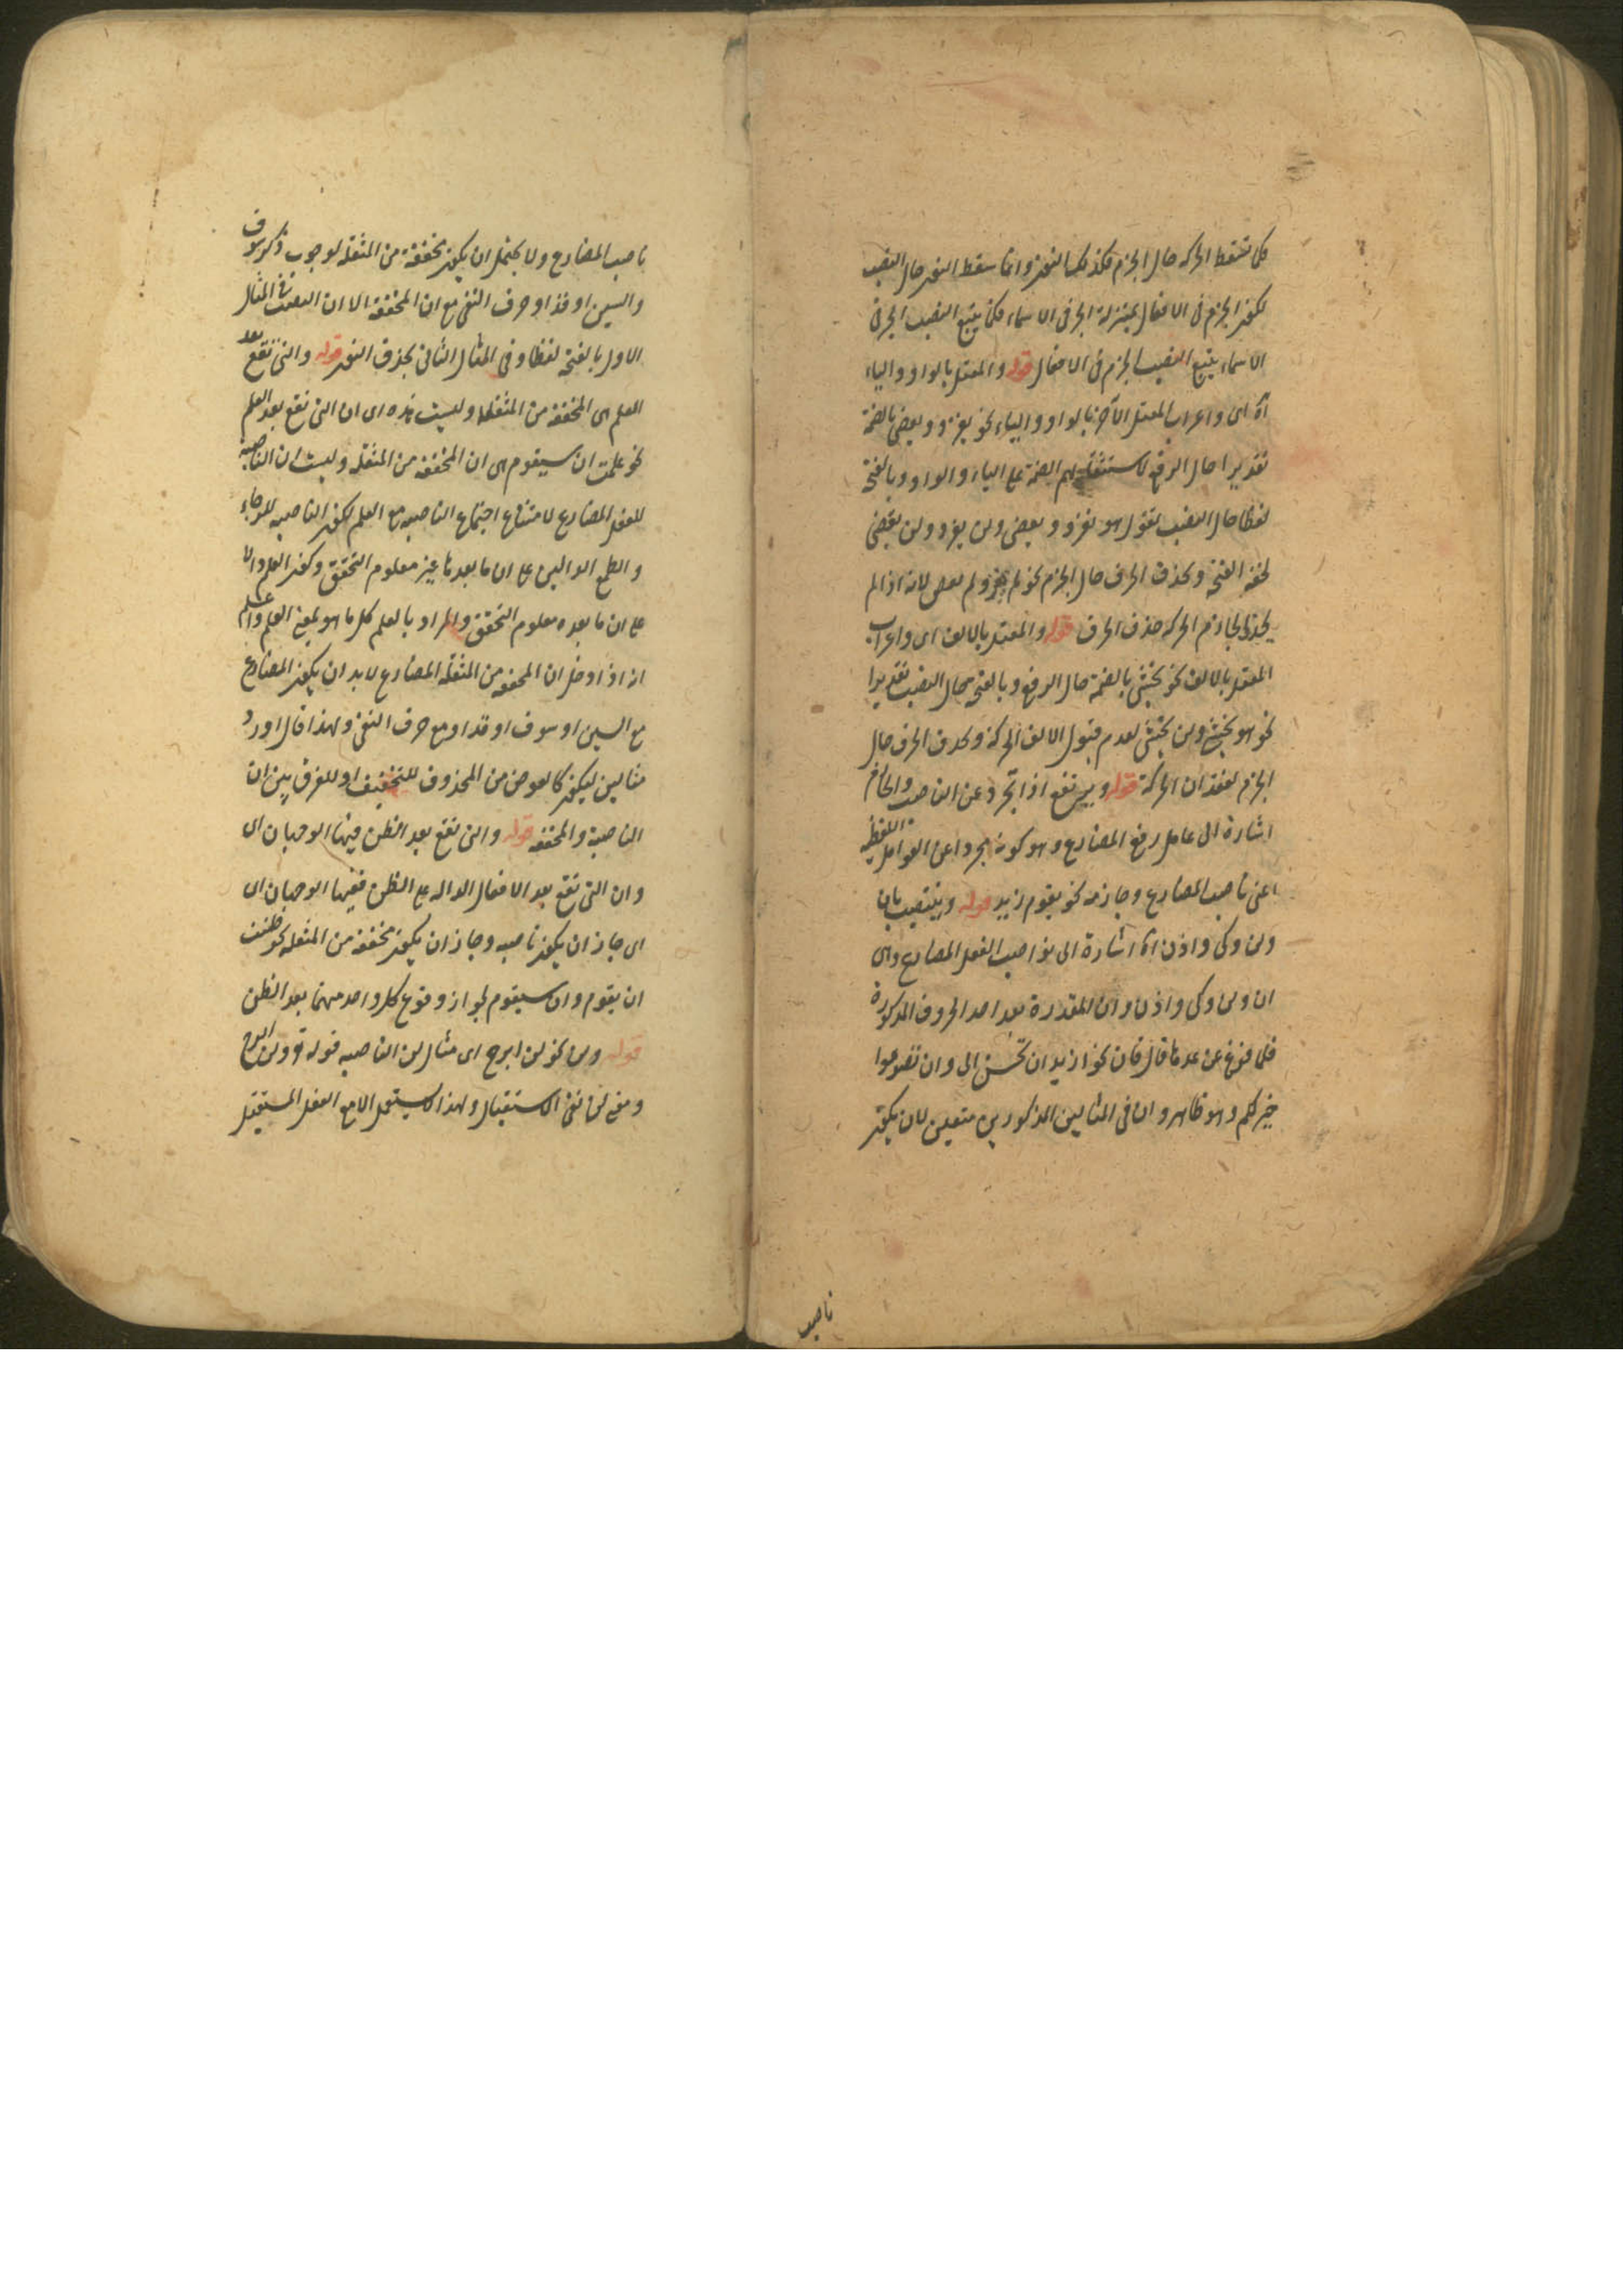 كما تسقط الحركة حال الجزم فكذلك النون وانما سقط النون حال النصب
لكون الجزم فى الافعال بمنزلة الجر فى الاسماء فكما يتبع النصب الجر فى
الاسماء يتبع النصب الجزم فى الافعال قوله والمعتل بالواو والياء
آه اى واعراب المعتل الآخر بالواو والياء نحو يغزو ويقضى بالضمة
تقديرا حال الرفع لاستثقالهم الضمة على الياء والواو وبالفتحة
لفظا حال النصب تقول هو يغزو ويقضى ولن يغزو ولن يقضى
لخفة الفتحة وبحذف الحرف حال الجزم نحو لم يغز ولم يقض لانه اذا لم
يجد الجازم الحركة حذف الحرف قوله والمعتل بالالف اى واعراب
المعتل بالالف نحو يخشى بالضمة حال الرفع وبالفتحة حال النصب تقديرا
نحو هو يخشى ولن يخشى لعدم قبول الالف الحركة وبحذف الحرف حال
الجزم لفقدان الحركة قوله ويرتفع اذا تجرد عن الناصب والجازم
اشارة الى عامل رفع المضارع وهو كونه مجردا عن العوامل اللفظية
اعنى ناصب المضارع وجازمه نحو يقوم زيد قوله وينتصب بان
ولن وكى واذن آه اشارة الى نواصب الفعل المضارع وهى
ان ولن وكى واذن وان المقدرة بعد احد الحروف المذكورة
فلما فرغ عن عدها قال فان نحو اريد ان تحسن الى وان تصوموا
خير لكم وهو ظاهر وان فى المثالين المذكورين متعين لان يكون
ناصب
ناصب المضارع ولا يحتمل ان يكون مخففة من المثقلة لوجوب ذكر سوف
والسين او قد او حرف النفى مع ان المخففة الا ان النصب فى المثال
الاول بالفتحة لفظا وفى المثال الثانى بحذف النون قوله والتى تقع بعد
العلم هى المخففة من المثقلة وليست هذه اى ان التى تقع بعد العلم
نحو علمت ان سيقوم هى ان المخففة من المثقلة وليست ان الناصبة
للفعل المضارع لامتناع اجتماع الناصبة مع العلم لكون الناصبة للرجاء
والطمع الدالين على ان ما بعدها غير معلوم التحقق وكون العلم دالا
على ان ما بعده معلوم التحقق والمراد بالعلم كل ما هو بمعنى العلم واعلم
انه اذا دخل ان المخففة من المثقلة المضارع لا بد ان يكون المضارع
مع السين او سوف او قد او مع حرف النفى ولهذا قال اورد
مثالين ليكون كالعوض من المحذوف للتخفيف او للفرق بين ان
الناصبة والمخففة قوله والتى تقع بعد الظن فيها الوجهان اى
وان التى تقع بعد الافعال الدالة على الظن ففيها الوجهان اى
اى جاز ان يكون ناصبه وجاز ان يكون مخففة من المثقلة نحو ظننت
ان يقوم وان سيقوم لجواز وقوع كل واحد منهما بعد الظن
قوله ولن نحو لن ابرح اى مثال لن الناصبه قوله تع ولن ابرح
ومعنى لن نفى الاستقبال ولهذا لا يستعمل الا مع الفعل المستقبل